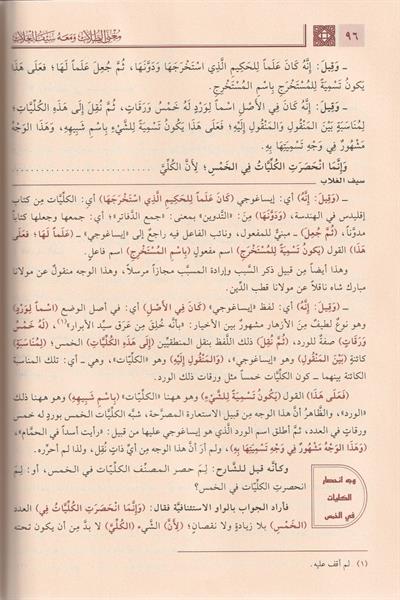 ٩٦
مغني الطلاب ومعه سيف الغلاب
ـ وَقِيلَ: إِنَّهُ كَانَ عَلَماً لِلحَكِيمِ الَّذِي اسْتَخْرَجَهَا وَدَوَّنَهَا، ثُمَّ جُعِلَ عَلَماً لَهَا؛ فَعَلَى هَذَا
يَكونُ تَسْمِيَةً لِلمُسْتَخْرَجِ بِاسْمِ المُسْتَخْرِجِ.
ـ وَقِيلَ: إِنَّهُ كَانَ فِي الأَصْلِ اسْماً لِوَرْدٍ لَهُ خَمْسُ وَرَقَاتٍ، ثُمَّ نُقِلَ إِلَى هَذِهِ الكُلِّيَّاتِ؛
لِمُنَاسَبَةٍ بَيْنَ المَنْقُولِ وَالمَنْقُولِ إِلَيْهِ؛ فَعَلَى هَذَا يَكُونُ تَسْمِيَةً لِلشَّيْءِ بِاسْمِ شَبِيهِهِ، وَهَذَا الوَجْهُ
مَشْهُورٌ فِي وَجْهِ تَسْمِيَتِهَا بِهِ.
وَإِنَّمَا انْحَصَرَتِ الكُلِّيَّاتُ فِي الخَمْسِ؛ لِأَنَّ الكُلِّيَّ ..................
سيف الغلاب
ـ (وَقِيلَ: إِنَّهُ) أي: إيساغوجي (كَانَ عَلَماً لِلحَكِيمِ الَّذِي اسْتَخْرَجَهَا) أي: الكلِّيَّات من كتاب
إقليدس في الهندسة، (وَدَوَّنَهَا) مِنَ: «التَّدوين» بمعنى: «جمع الدَّفاتر»؛ أي: جمعها وجعلها كتاباً
مدوَّناً، (ثُمَّ جُعِلَ) ـ مبنيٌّ للمفعول، ونائب الفاعل فيه راجعٌ إلى «إيساغوجي» ـ (عَلَماً لَهَا؛ فعلى
هَذَا) القول (يكونُ تَسْمِيَةً لِلْمُسْتَخْرَجِ) اسم مفعولٍ (بِاسْمِ المُسْتَخْرِجِ) اسم فاعلٍ.
وهذا أيضاً مِن قبيل ذكر السَّبب وإرادة المسبَّب مجازاً مرسلاً، وهذا الوجه منقولٌ عن مولانا
مبارك شاه ناقلاً عن مولانا قطب الدِّين.
ـ (وَقِيلَ: إِنَّهُ) أي: لفظ «إيساغوجي» (كَانَ فِي الأَصْلِ) أي: في أصل الوضع (اسْماً لِوَرْدٍ)
وهو نوعٌ لطيفٌ مِنَ الأزهار مشهورٌ بين الأخيار: «بأنَّه خُلِقَ مِن عَرَق سيِّد الأبرار»(١)، (لَهُ خَمْسُ
وَرَقَاتٍ) صفةٌ للورد، (ثُمَّ نُقِلَ) ذلك اللَّفظ بنقل المنطقيِّين (إِلَى هَذِهِ الكُلِّيَّاتِ) الخمس؛ (لِمُنَاسَبَةٍ)
كائنةٍ (بَيْنَ المَنْقُولِ) وهو «إيساغوجي»، (وَالمَنْقُولِ إِلَيْهِ) وهو «الكلِّيَّات»، وهي ـ أي: تلك المناسبة
الكائنة بينهما ـ كون الكلِّيَّات خمساً مثل ورقات ذلك الورد.
(فَعَلَى هَذَا) القول (يَكُونُ تَسْمِيَةً لِلشَّيْءِ) وهو ههنا «الكلِّيَّات» (بِاسْمِ شَبِيهِهِ) وهو ههنا
«الورد»، والظَّاهرُ أنَّ هذا الوجه مِن قبيل الاستعارة المصرَّحة، شبَّه الكلِّيَّات الخمس بوردٍ له خمس
ورقاتٍ في العدد، ثمَّ أطلق اسم الورد الَّذي هو إيساغوجي عليها من قبيل: «رأيت أسداً في الحمَّام»،
(وَهَذَا الوَجْهُ مَشْهُورٌ فِي وَجْهِ تَسْمِيَتِهَا بِهِ)، ولم أرَ أنَّ هذا الوجه مِن أيِّ ذاتٍ نُقِل، ولذا لم أحرِّره.
وجه انحصار
الكليات
في الخمس
وكأنَّه قيل للشَّارح: لِمَ حصر المصنِّف الكلِّيَّات في الخمس، أو: لِمَ
انحصرتِ الكلِّيَّات في الخمس؟
فأراد الجواب بالواو الاستئنافيَّة فقال: (وَإِنَّمَا انْحَصَرَتِ الكُلِّيَّاتُ فِي) العدد
(الخَمْسِ) بلا زيادةٍ ولا نقصانٍ؛ (لِأَنَّ) الشَّيء (الكُلِّيَّ) لا بدَّ مِن أن يكون تحته
(١) لم أقف عليه.